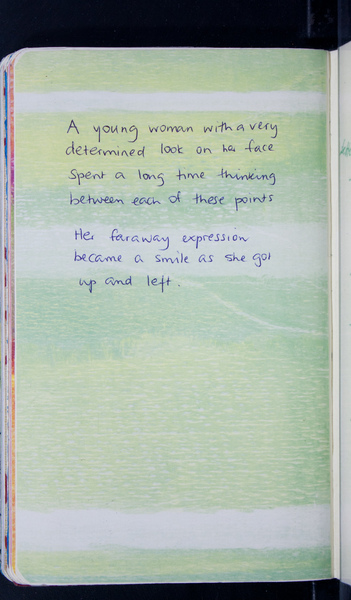 A young woman with a very
determined look on her face
spent a long time thinking
between each of these points
Her faraway expression
became a smile as she got
up and left.